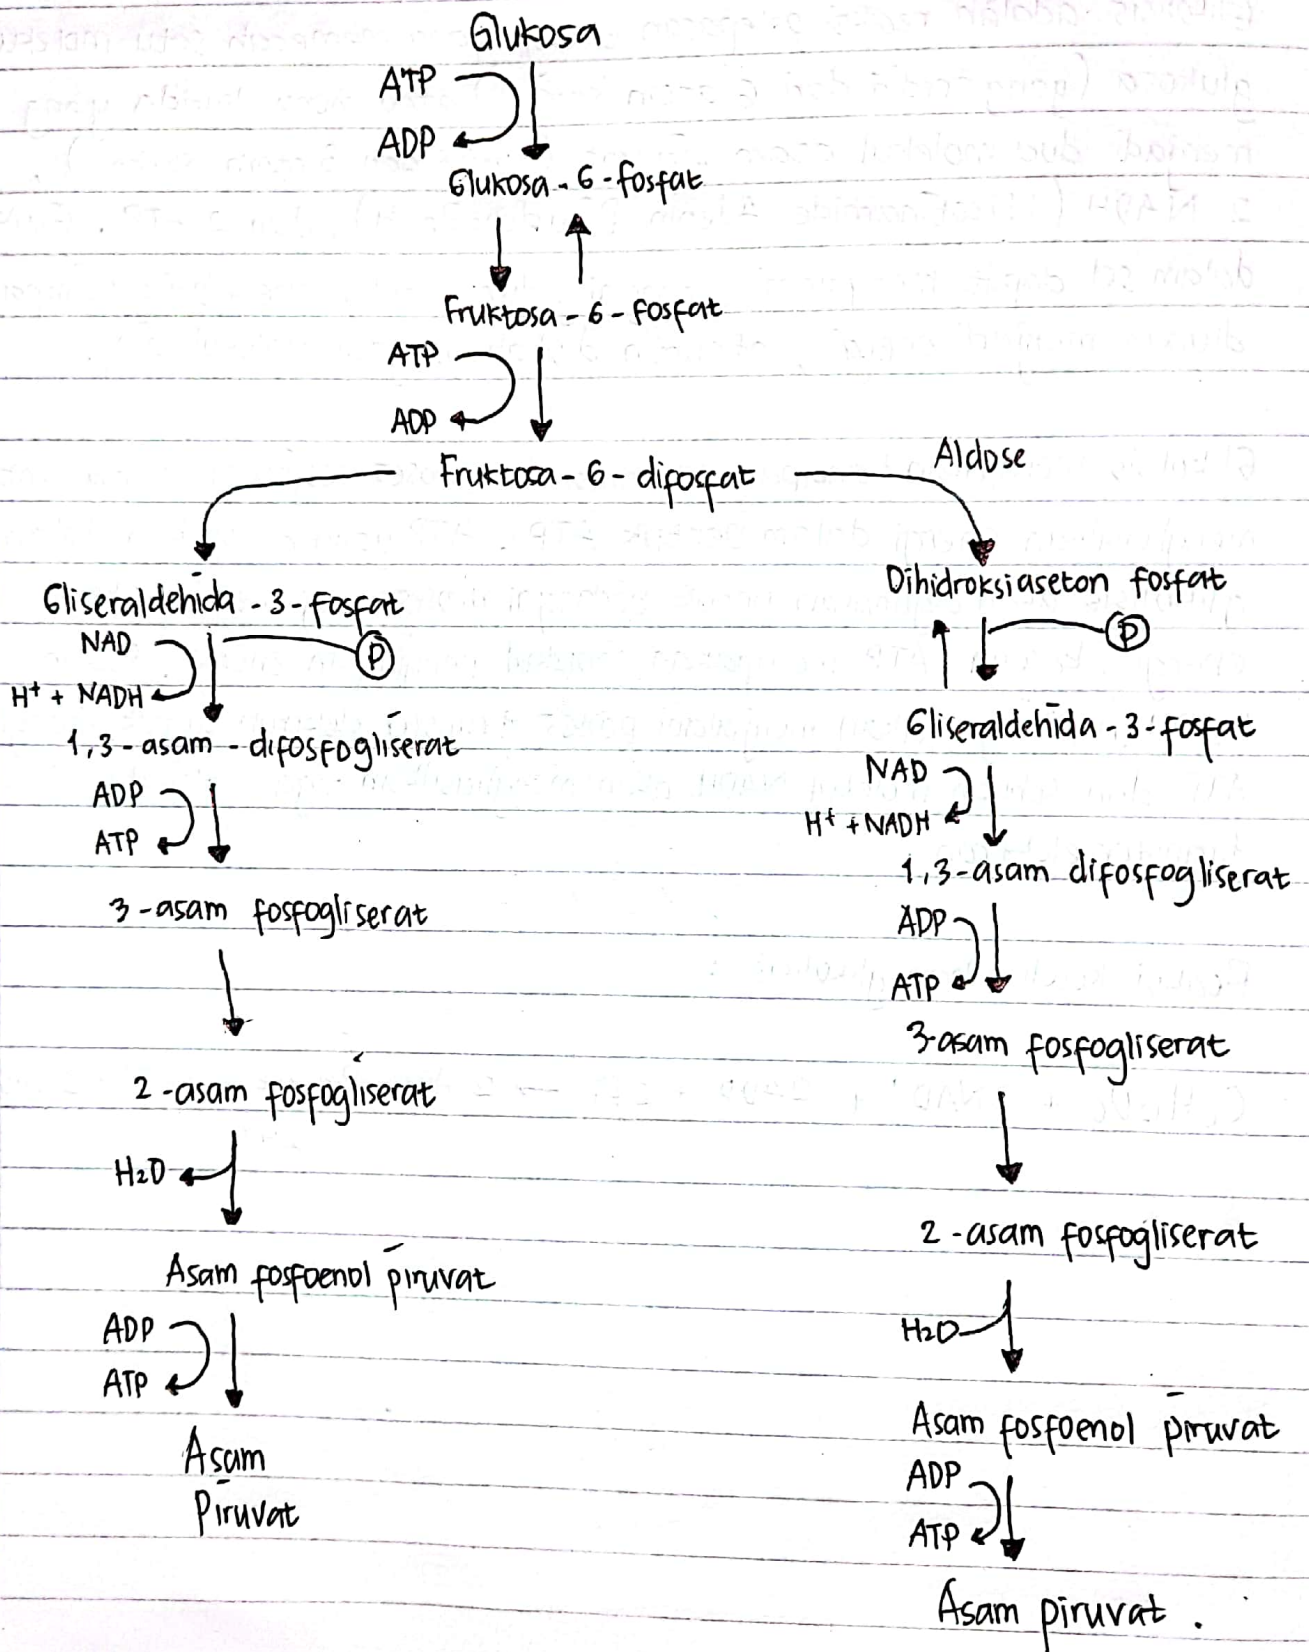 Glukosa
ATP
ADP
Glukosa - 6 - fosfat
Fruktosa - 6 - fosfat
ATP
ADP
Fruktosa - 6 - difosfat
Aldose
Gliseraldehida - 3 - fosfat
NAD
P
H+ + NADH
1,3 - asam - difosfogliserat
ADP
ATP
3 - asam fosfogliserat
2 - asam fosfogliserat
H2O
Asam fosfoenol piruvat
ADP
ATP
Asam
Piruvat
Dihidroksiaseton fosfat
P
Gliseraldehida - 3 - fosfat
NAD
H+ + NADH
1,3 - asam difosfogliserat
ADP
ATP
3-asam fosfogliserat
2 - asam fosfogliserat
H2O
Asam fosfoenol piruvat
ADP
ATP
Asam piruvat .